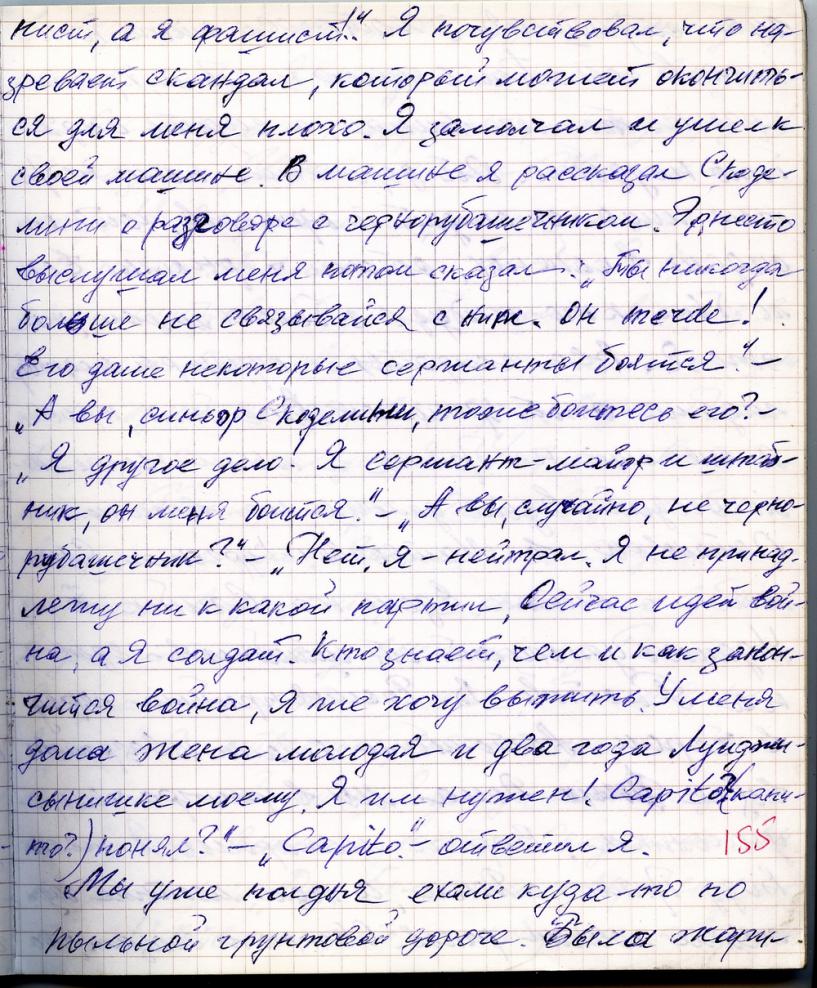 нист, а я фашист!." Я почувствовал, что на-
зревает скандал, который может окончить-
ся для меня плохо. Я замолчал и ушел к
своей машине. В машине я рассказал Скоде-
лини о разговоре с чернорубашечником. Эрнесто
выслушал меня потом сказал: „Ты никогда
больше не связывайся с ним. Он
Его даже некоторые сержанты боятся." –
„А вы, синьор Скоделини, тоже боитесь его? –
„Я другое дело! Я сержант-майор и штаб-
ник, он меня боится." – „А вы, случайно, не черно-
рубашечник?" – „Нет, я – нейтрал. Я не принад-
лежу ни к какой партии, Сейчас идёт вой-
на, а я солдат. Кто знает, чем и как закон-
чится война, я же хочу выжить. У меня
дома жена молодая и два года Луиджи-
сынишке моему. Я им нужен! Capito? (капи-
то?) понял?" – „Capito." – ответил я.
155
Мы уже полдня ехали куда-то по
пыльной грунтовой дороге. Была жари-